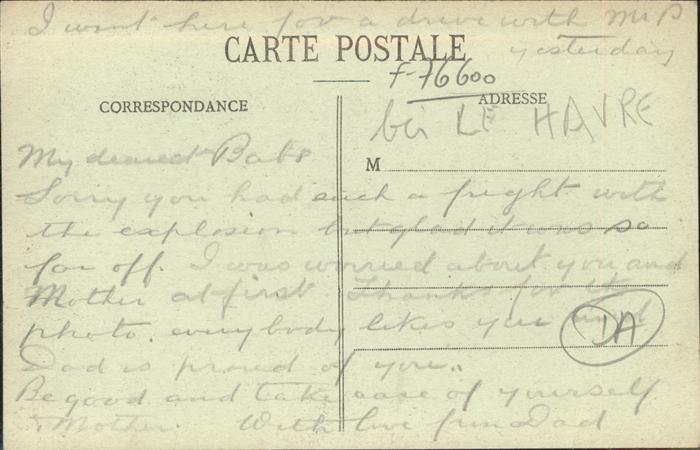 I went here for a drive with Mr P
yesterday
CARTE POSTALE
F-76600
CORRESPONDANCE
ADRESSE
bei LE HAVRE
My dearest Babs
M
Sorry you had such a fright with
the explosion but glad it was so
far off. I was worried about you and
Mother at first. Thanks for the
photo. everybody likes you and
DA
Dad is proud of you..
Be good and take care of yourself
& Mother. With love from Dad